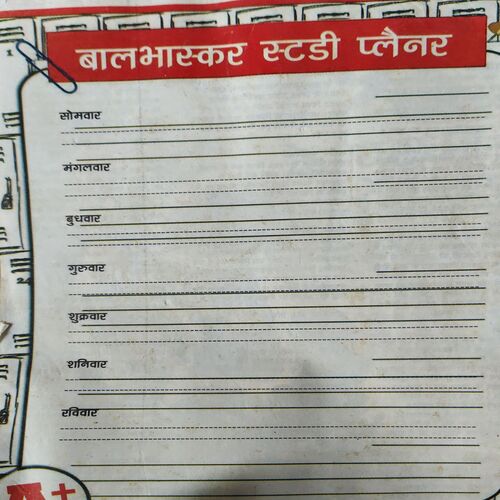 बालभास्कर स्टडी प्लैनर
सोमवार
मंगलवार
बुधवार
गुरुवार
शुक्रवार
शनिवार
रविवार
A+